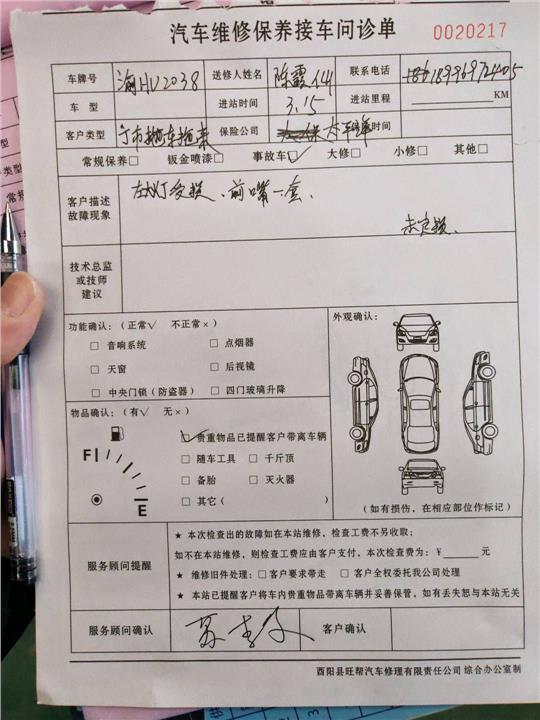 汽车维修保养接车问诊单 0020217
车牌号 渝HV2038 送修人姓名 陈霞 联系电话
车 型 进站时间 3.15 进站里程 KM
客户类型 保险公司 时间
常规保养□ 钣金喷漆□ 事故车□ 大修□ 小修□ 其他□
客户描述
故障现象
左大灯受损、前嘴一套、
未定损、
技术总监
或技师
建议
功能确认:(正常√ 不正常×) 外观确认:
□ 音响系统 □ 点烟器
□ 天窗 □ 后视镜
□ 中央门锁(防盗器) □ 四门玻璃升降
物品确认:(有√ 无×)
贵重物品已提醒客户带离车辆
F □ 随车工具 □ 千斤顶
□ 备胎 □ 灭火器
E □ 其它( )
(如有损伤,在相应部位作标记)
服务顾问提醒
★ 本次检查出的故障如在本站维修,检查工费不另收取;
如不在本站维修,则检查工费应由客户支付,本次检查费为:¥ 元
★ 维修旧件处理:□客户要求带走 □ 客户全权委托我公司处理
★ 本站已提醒客户将车内贵重物品带离车辆并妥善保管,如有丢失恕与本站无关
服务顾问确认 客户确认
酉阳县旺帮汽车修理有限责任公司 综合办公室制